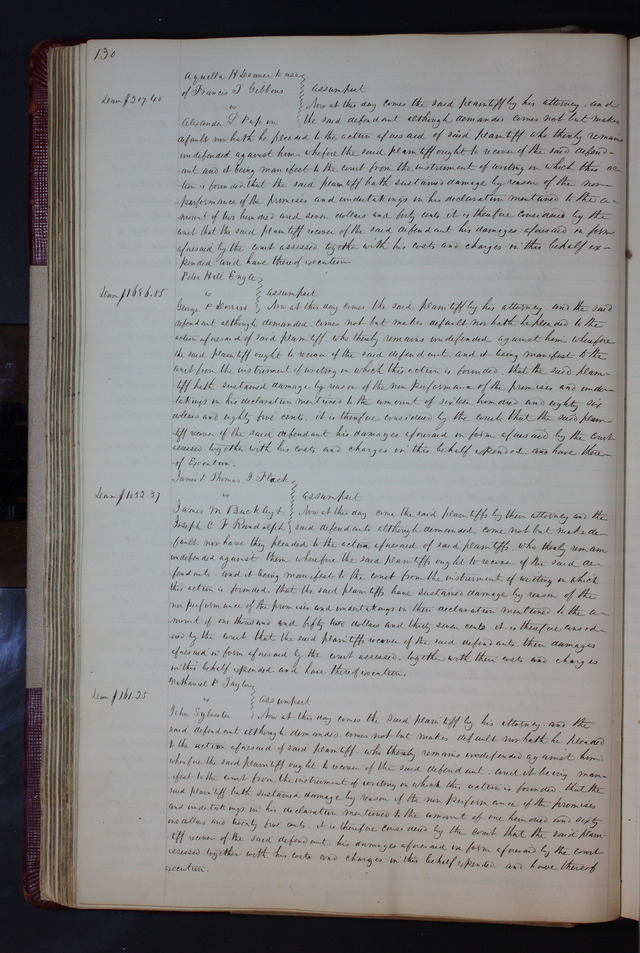 130
Aquella H Dosamer to use
of Francis T Gibbons } assumpsit
Dam $207.40 vs } Now at this day comes the said plaintiff by his attorney. and
Alexander L Papin } the said defendant although demanded comes not but makes
default nor hath he pleaded to the action aforesaid of said plaintiff who thereby remains
undefended against him. wherefore the said plaintiff ought to recover of the said defend-
ant and it being manifest to the court from the instrument of writing on which this ac-
tion is founded that the said plaintiff hath sustained damage by reason of the non
performance of the promises and undertakings in his declaration mentioned to the a-
mount of two hundred and seven dollars and forty cents it is therefore considered by the
court that the said plaintiff recover of the said defendant his damages aforesaid in form
aforesaid by the court assessed together with his costs and charges in this behalf ex-
pended and have thereof execution
Peter Hill Engle
Dam $1686.85 vs } assumpsit
George P Dorriss } Now at this day comes the said plaintiff by his attorney and the said
defendant although demanded. comes not but makes default nor hath he pleaded to the
action aforesaid of said plaintiff. who thereby remains undefended against him wherefore
the said plaintiff ought to recover of the said defendant. and it being manifest to the
court from the instrument of writing on which this action is founded, that the said plain-
tiff hath sustained damage by reason of the non performance of the promises and under-
takings in his declaration mentioned to the amount of sixteen hundred and eighty six
dollars and eighty five cents. it is therefore considered by the court that the said plain-
tiff recover of the said defendant his damages aforesaid in form aforesaid by the court
assessed. together with his costs and charges in this behalf expended and have there-
of Execution.
James & Thomas J Flack
Dam $1052.37 vs } assumpsit
James M Buckley & } Now at this day come the said plaintiffs by their attorney and the
Joseph C F Randolph } said defendants although demanded come not but make de-
fault. nor have they pleaded to the action aforesaid of said plaintiffs. who thereby remain
undefended against them wherefore the said plaintiffs ought to recover of the said de-
fendants. and it being manifest to the court from the instrument of writing on which
this action is founded. that the said plaintiffs have sustained damage by reason of the
non performance of the promises and undertakings in their declaration mentioned to the a-
mount of one thousand and fifty two dollars and thirty seven cents. it is therefore consid-
ered by the court that the said plaintiffs recover of the said defendants. their damages
aforesaid in form aforesaid by the court assessed. together with their costs and charges
in this behalf expended. and have thereof execution.
Nathaniel P Taylor
Dam $161.25 vs } assumpsit
John Sylvester } Now at this day comes the said plaintiff by his attorney. and the
said defendant although demanded. comes not but makes default nor hath he pleaded
to the action aforesaid of said plaintiff. who thereby remains undefended against him.
wherefore the said plaintiff ought to recover of the said defendant. and it being man-
ifest to the court from the instrument of writing on which this action is founded. that the
said plaintiff hath sustained damage by reason of the non performance of the promises
and undertakings in his declaration mentioned to the amount of one hundred and sixty
one dollars and twenty five cents. it is therefore considered by the Court that the said plain-
tiff recover of the said defendant. his damages aforesaid in form aforesaid by the court
assessed. together with his costs and charges in this behalf expended and have thereof
execution.